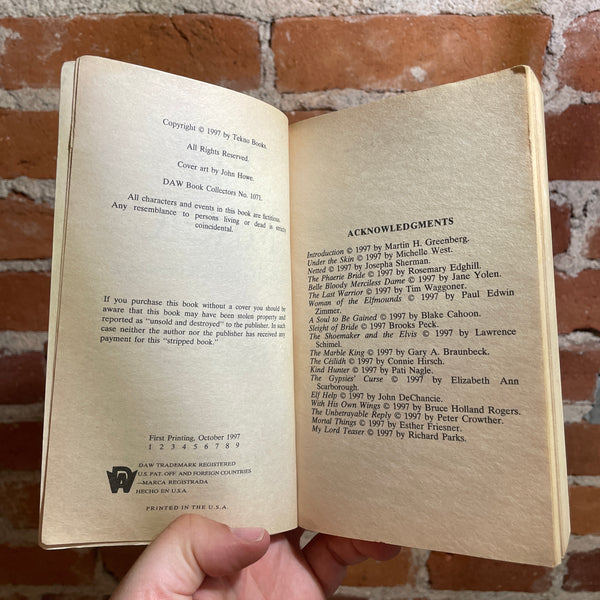 Copyright © 1997 by Tekno Books.
All Rights Reserved.
Cover art by John Howe.
DAW Book Collectors No. 1071.
All characters and events in this book are fictitious.
Any resemblance to persons living or dead is strictly
coincidental.
If you purchase this book without a cover you should be
aware that this book may have been stolen property and
reported as "unsold and destroyed" to the publisher. In such
case neither the author nor the publisher has received any
payment for this "stripped book."
First Printing, October 1997
1 2 3 4 5 6 7 8 9
DAW TRADEMARK REGISTERED
U.S. PAT. OFF. AND FOREIGN COUNTRIES
—MARCA REGISTRADA
HECHO EN U.S.A.
PRINTED IN THE U.S.A.
ACKNOWLEDGMENTS
Introduction © 1997 by Martin H. Greenberg.
Under the Skin © 1997 by Michelle West.
Netted © 1997 by Josepha Sherman.
The Phaerie Bride © 1997 by Rosemary Edghill.
Belle Bloody Merciless Dame © 1997 by Jane Yolen.
The Last Warrior © 1997 by Tim Waggoner.
Woman of the Elfmounds © 1997 by Paul Edwin
Zimmer.
A Soul to Be Gained © 1997 by Blake Cahoon.
Sleight of Bride © 1997 Brooks Peck.
The Shoemaker and the Elvis © 1997 by Lawrence
Schimel.
The Marble King © 1997 by Gary A. Braunbeck.
The Cêilidh © 1997 by Connie Hirsch.
Kind Hunter © 1997 by Pati Nagle.
The Gypsies' Curse © 1997 by Elizabeth Ann
Scarborough.
Elf Help © 1997 by John DeChancie.
With His Own Wings © 1997 by Bruce Holland Rogers.
The Unbetrayable Reply © 1997 by Peter Crowther.
Mortal Things © 1997 by Esther Friesner.
My Lord Teaser © 1997 by Richard Parks.